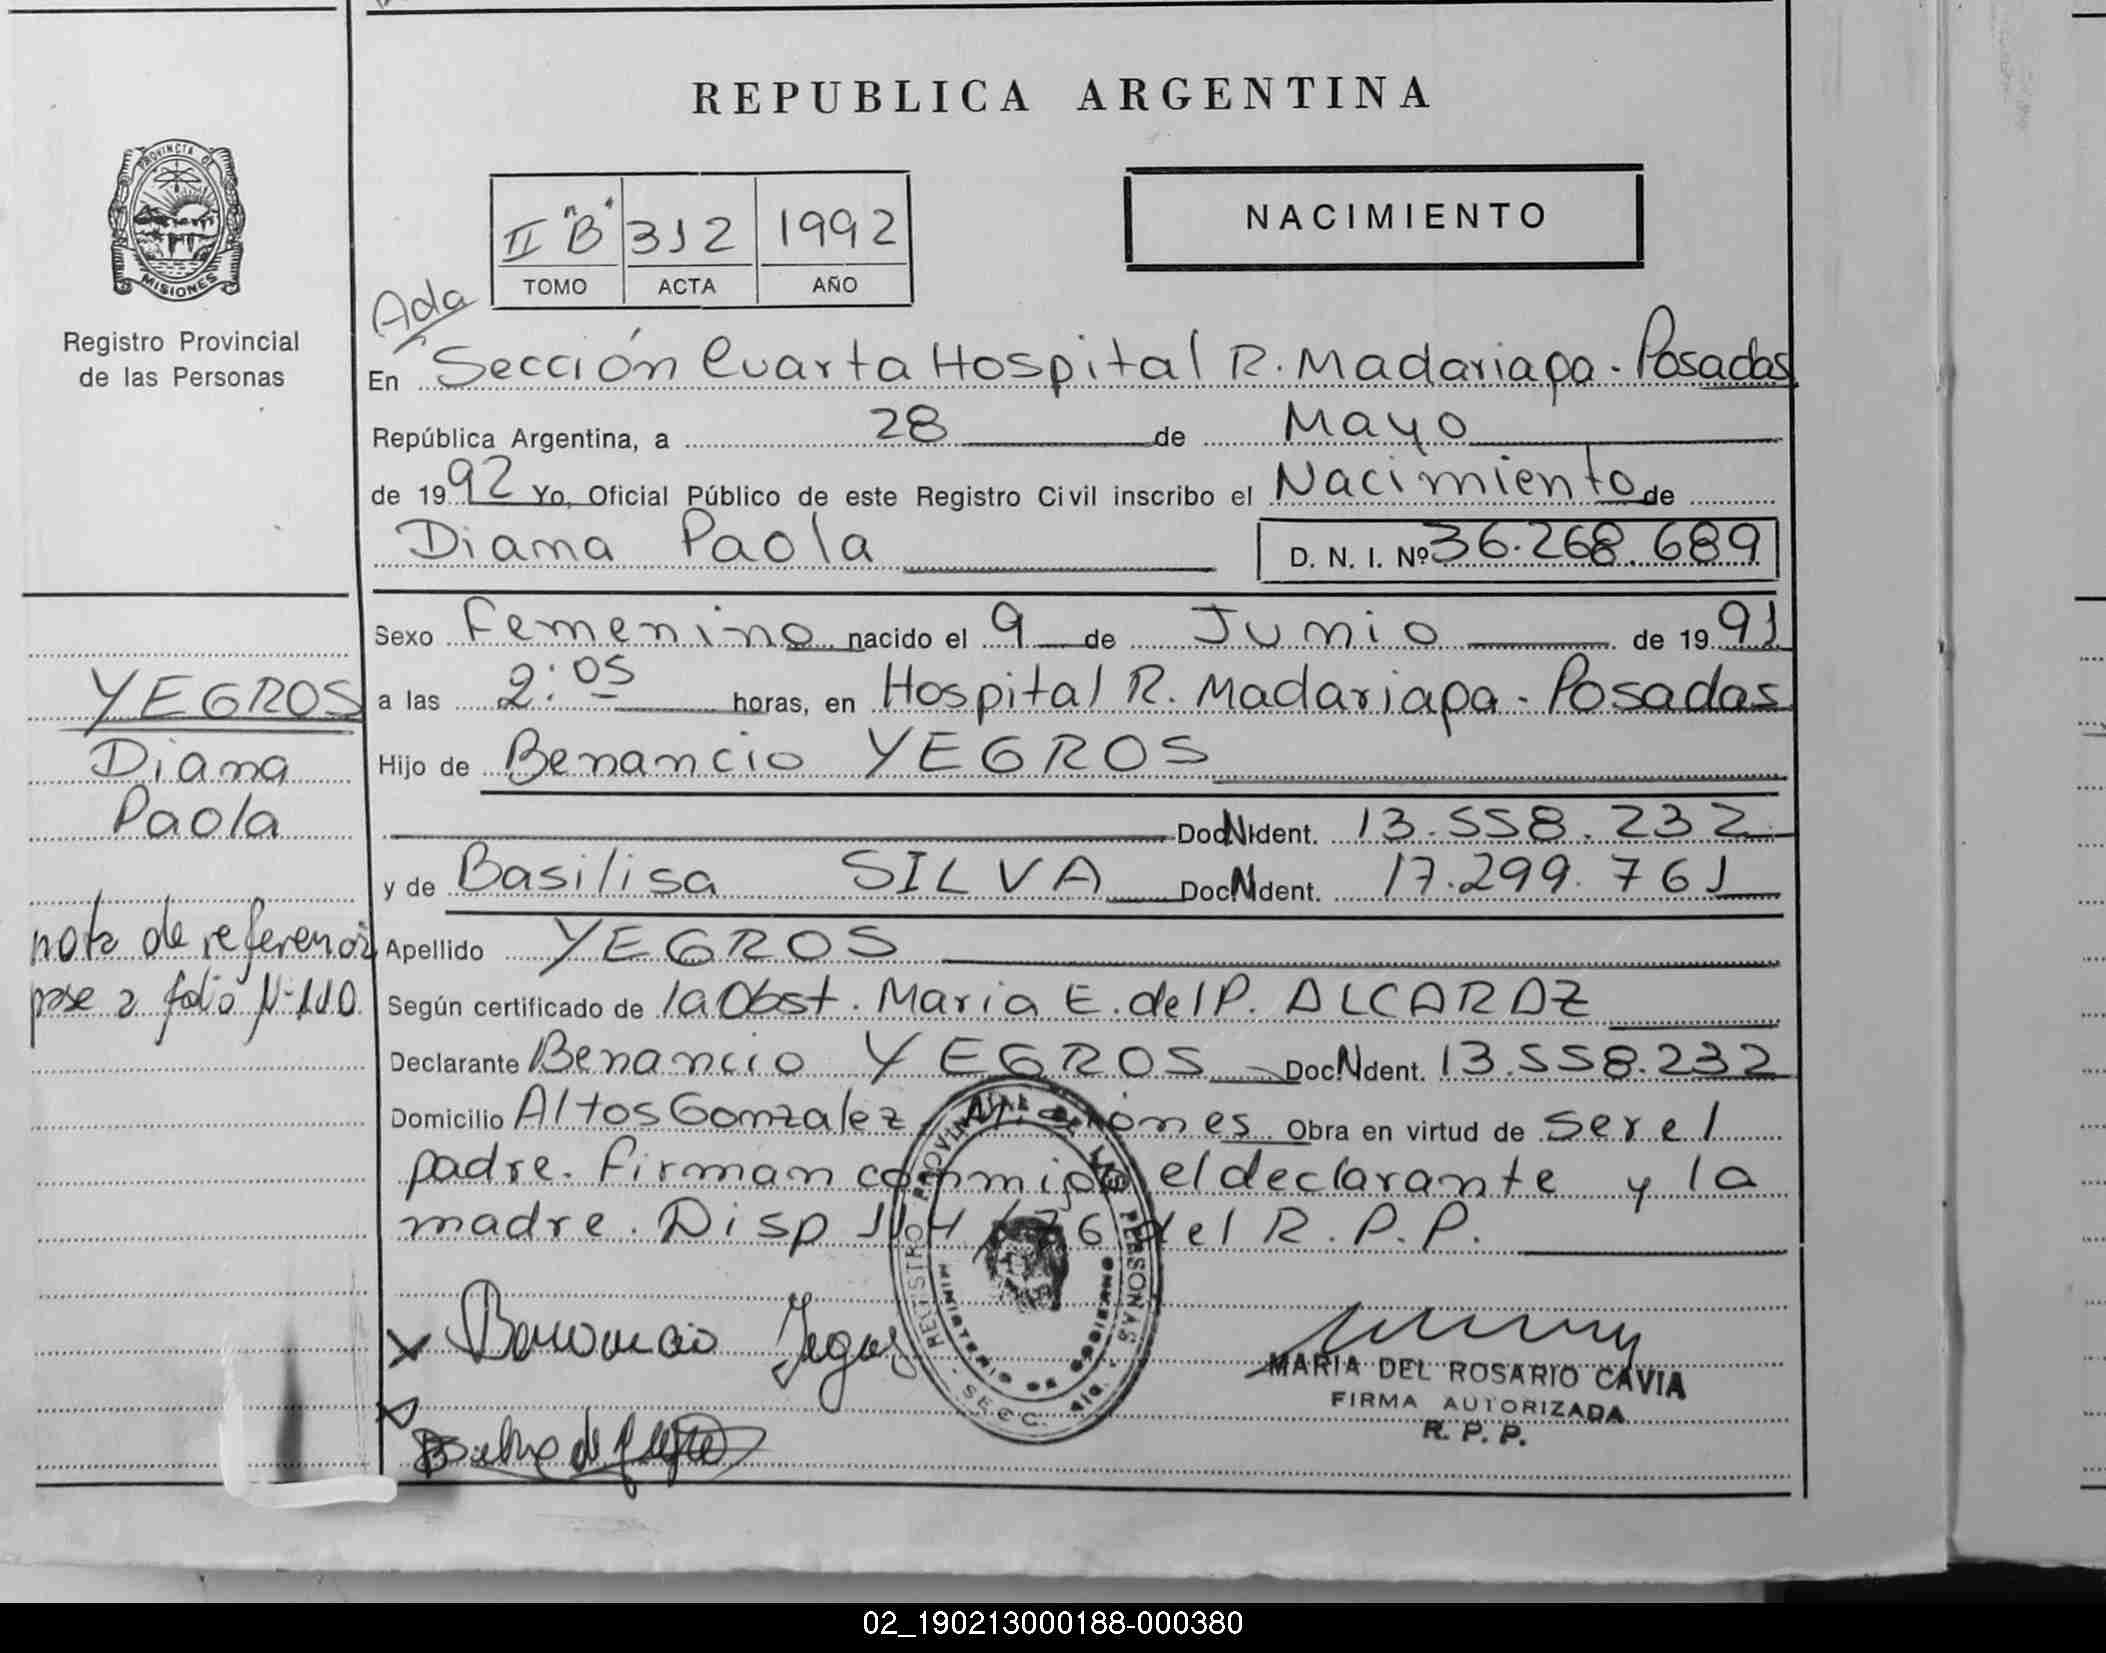 REPUBLICA ARGENTINA
PROVINCIA DE
MISIONES
Registro Provincial
de las Personas
II "B" 312 1992
TOMO ACTA AÑO
NACIMIENTO
Ada
En Sección Cuarta Hospital R. Madariaga - Posadas
República Argentina, a 28 de Mayo
de 1992 Yo, Oficial Público de este Registro Civil inscribo el Nacimiento de
Diana Paola D. N. I. Nº 36.268.689
Sexo Femenino nacido el 9 de Junio de 1991
a las 2:05 horas, en Hospital R. Madariaga - Posadas
Hijo de Benancio YEGROS
Doc.N.Ident. 13.558.232
y de Basilisa SILVA Doc.N.Ident. 17.299.761
Apellido YEGROS
Según certificado de la Obst. Maria E. del P. ALCARAZ
Declarante Benancio YEGROS Doc.N.Ident. 13.558.232
Domicilio Altos Gonzalez Misiones Obra en virtud de ser el
padre. Firman conmigo el declarante y la
madre. Disp 114/76 del R.P.P.
YEGROS
Diana
Paola
nota de referencia
pase a folio Nº 110
Benancio Yegros
REGISTRO PROVINCIAL DE LAS PERSONAS
MINISTERIO DE GOBIERNO
SECC.
MARIA DEL ROSARIO CAVIA
FIRMA AUTORIZADA
R. P. P.
02_190213000188-000380